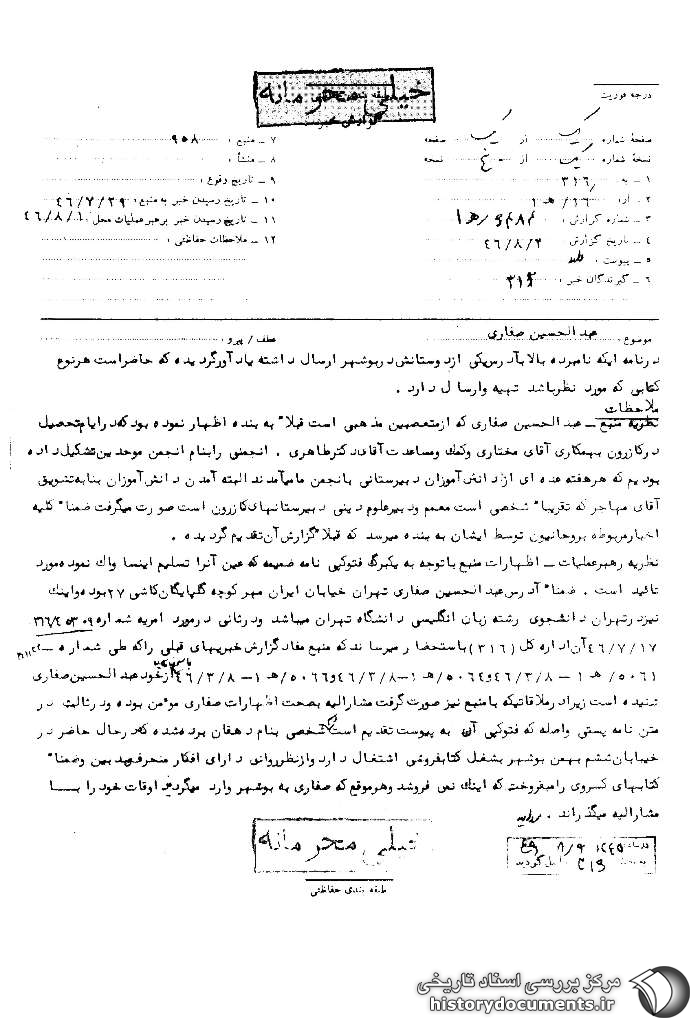 خیلی محرمانه
گزارش خبر
درجه فوریت
صفحهٔ شماره یک از یک صفحه
نسخهٔ شماره یک از پنج نسخه
۱ – به ۳۱۶
۲ – از ۶ / هـ ۱
۳ – شماره گزارش
۴ – تاریخ گزارش ۴۶/۸/۲
۵ – پیوست
۶ – گیرندگان خبر ۳۱۶
۷ – منبع : ۹۵۸
۸ – منشأ :
۹ – تاریخ وقوع :
۱۰ – تاریخ رسیدن خبر به منبع : ۴۶/۷/۲۹
۱۱ – تاریخ رسیدن خبر برهبر عملیات محل : ۴۶/۸/۱
۱۲ – ملاحظات حفاظتی :
موضوع : عبد الحسین صفاری
عطف / پیرو :
درنامه ایکه نامبرده بالا بآدرس یکی ازدوستانش دربوشهر ارسال داشته یادآورگردیده که حاضراست هرنوع
کتابی که مورد نظرباشد تهیه وارسال دارد .
ملاحظات
نظریه منبع – عبد الحسین صفاری که ازمتعصبین مذهبی است قبلاً به بنده اظهار نموده بود که درایام تحصیل
درکازرون بهمکاری آقای مختاری وکمک ومساعدت آقای دکترطاهری . انجمنی رابنام انجمن موحدین تشکیل داده
بودیم که هرهفته عده ای ازدانش آموزان دبیرستانی بانجمن مامیآمدند البته آمدن دانش آموزان بنابه تشویق
آقای مهاجرکه تقریباً شخصی است معمم ودبیرعلوم دینی دبیرستانهای کازرون است صورت میگرفت ضمناً کلیه
اخبارمربوطه بروحانیون توسط ایشان به بنده میرسد که قبلاً گزارش آن تقدیم گردیده .
نظریه رهبرعملیات – اظهارات منبع باتوجه به یکبرگ فتوکپی نامه ضمیمه که عین آنرا تسلیم اینساواک نموده مورد
تائید است . ضمناً آدرس عبد الحسین صفاری تهران خیابان ایران مهر کوچه گلپایگان کاشی ۲۷ بوده واینک
نیزدرتهران دانشجوی رشته زبان انگلیسی دانشگاه تهران میباشد ودرثانی درمورد امریه شماره ۳۱۶/۴۵۳۰۹
۴۶/۷/۱۷ آن اداره کل (۳۱۶) باستحضار میرساند که منبع مفاد گزارش خبریهای قبلی راکه طی شماره
۵۰۶۱/هـ ۱ – ۴۶/۳/۸ و ۵۰۶۴/هـ ۱ – ۴۶/۳/۸ و ۵۰۶۶/هـ ۱ – ۴۶/۳/۸ ازخود عبد الحسین صفاری
شنیده است زیرا درملاقاتیکه بامنبع نیز صورت گرفت مشارالیه بصحت اظهارات صفاری مؤمن بوده ودرثالث در
متن نامه پستی واصله که فتوکپی آن به پیوست تقدیم است شخصی بنام دهقان بوده شده که درحال حاضر در
خیابان ششم بهمن بوشهر بشغل کتابفروشی اشتغال دارد وازنظرروانی دارای افکار منحرفه بد بین وضمناً
کتابهای کسروی رامیفروخت که اینک نمی فروشد وهرموقع که صفاری به بوشهر وارد میگردد اوقات خود را با
مشارالیه میگذراند .
خیلی محرمانه
طبقه بندی حفاظتی
مرکز بررسی اسناد تاریخی
historydocuments.ir